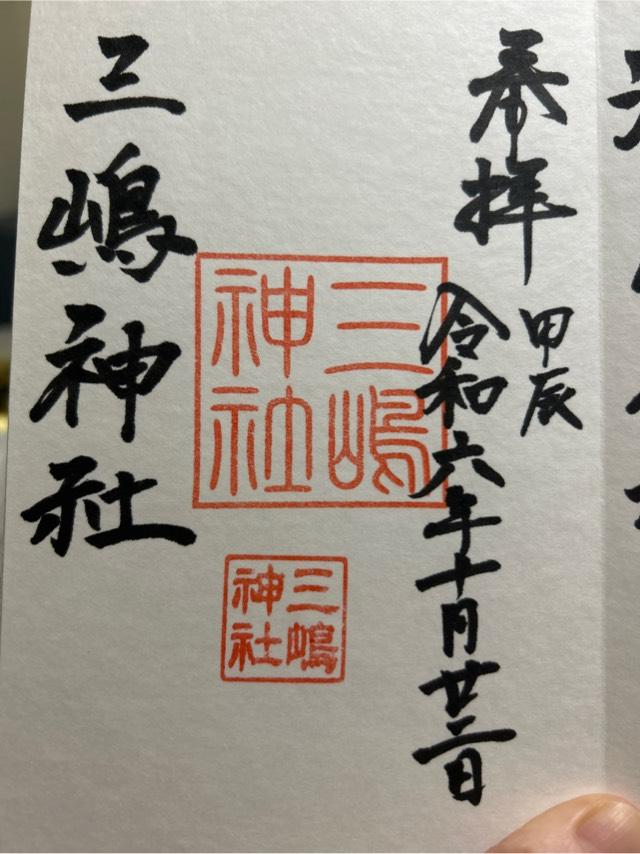 奉拝
甲辰
令和六年十月廿二日
三嶋
神社
三嶋
神社
三嶋神社